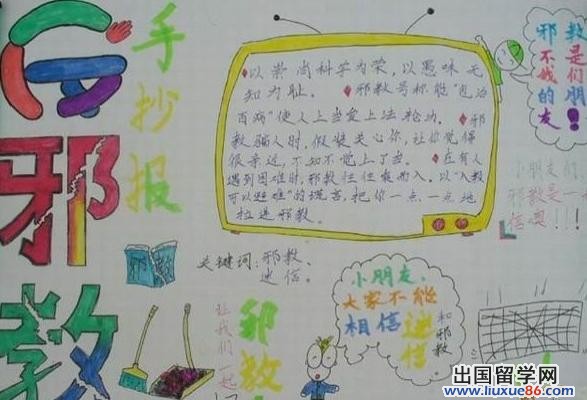 邪教
手抄报
以崇尚科学为荣,以愚昧无
知为耻。邪教号称能“包治
百病”使人上当爱上法轮功。邪
教骗人时,假装关心你,让你觉得
很亲近,不知不觉上了当。在有人
遇到困难时,邪教往往乘虚而入。以“入教
可以避难”的谎言,把你一点、一点地
拉进邪教。
邪教
不是
我们
的朋
友!
小朋友们
邪教是一
信噢!!!
关键词:邪教、
迷信。
邪教
让我们一起
邪教
小朋友,
大家不能
相信迷信
和邪教
出国留学网
www.liuxue86.com